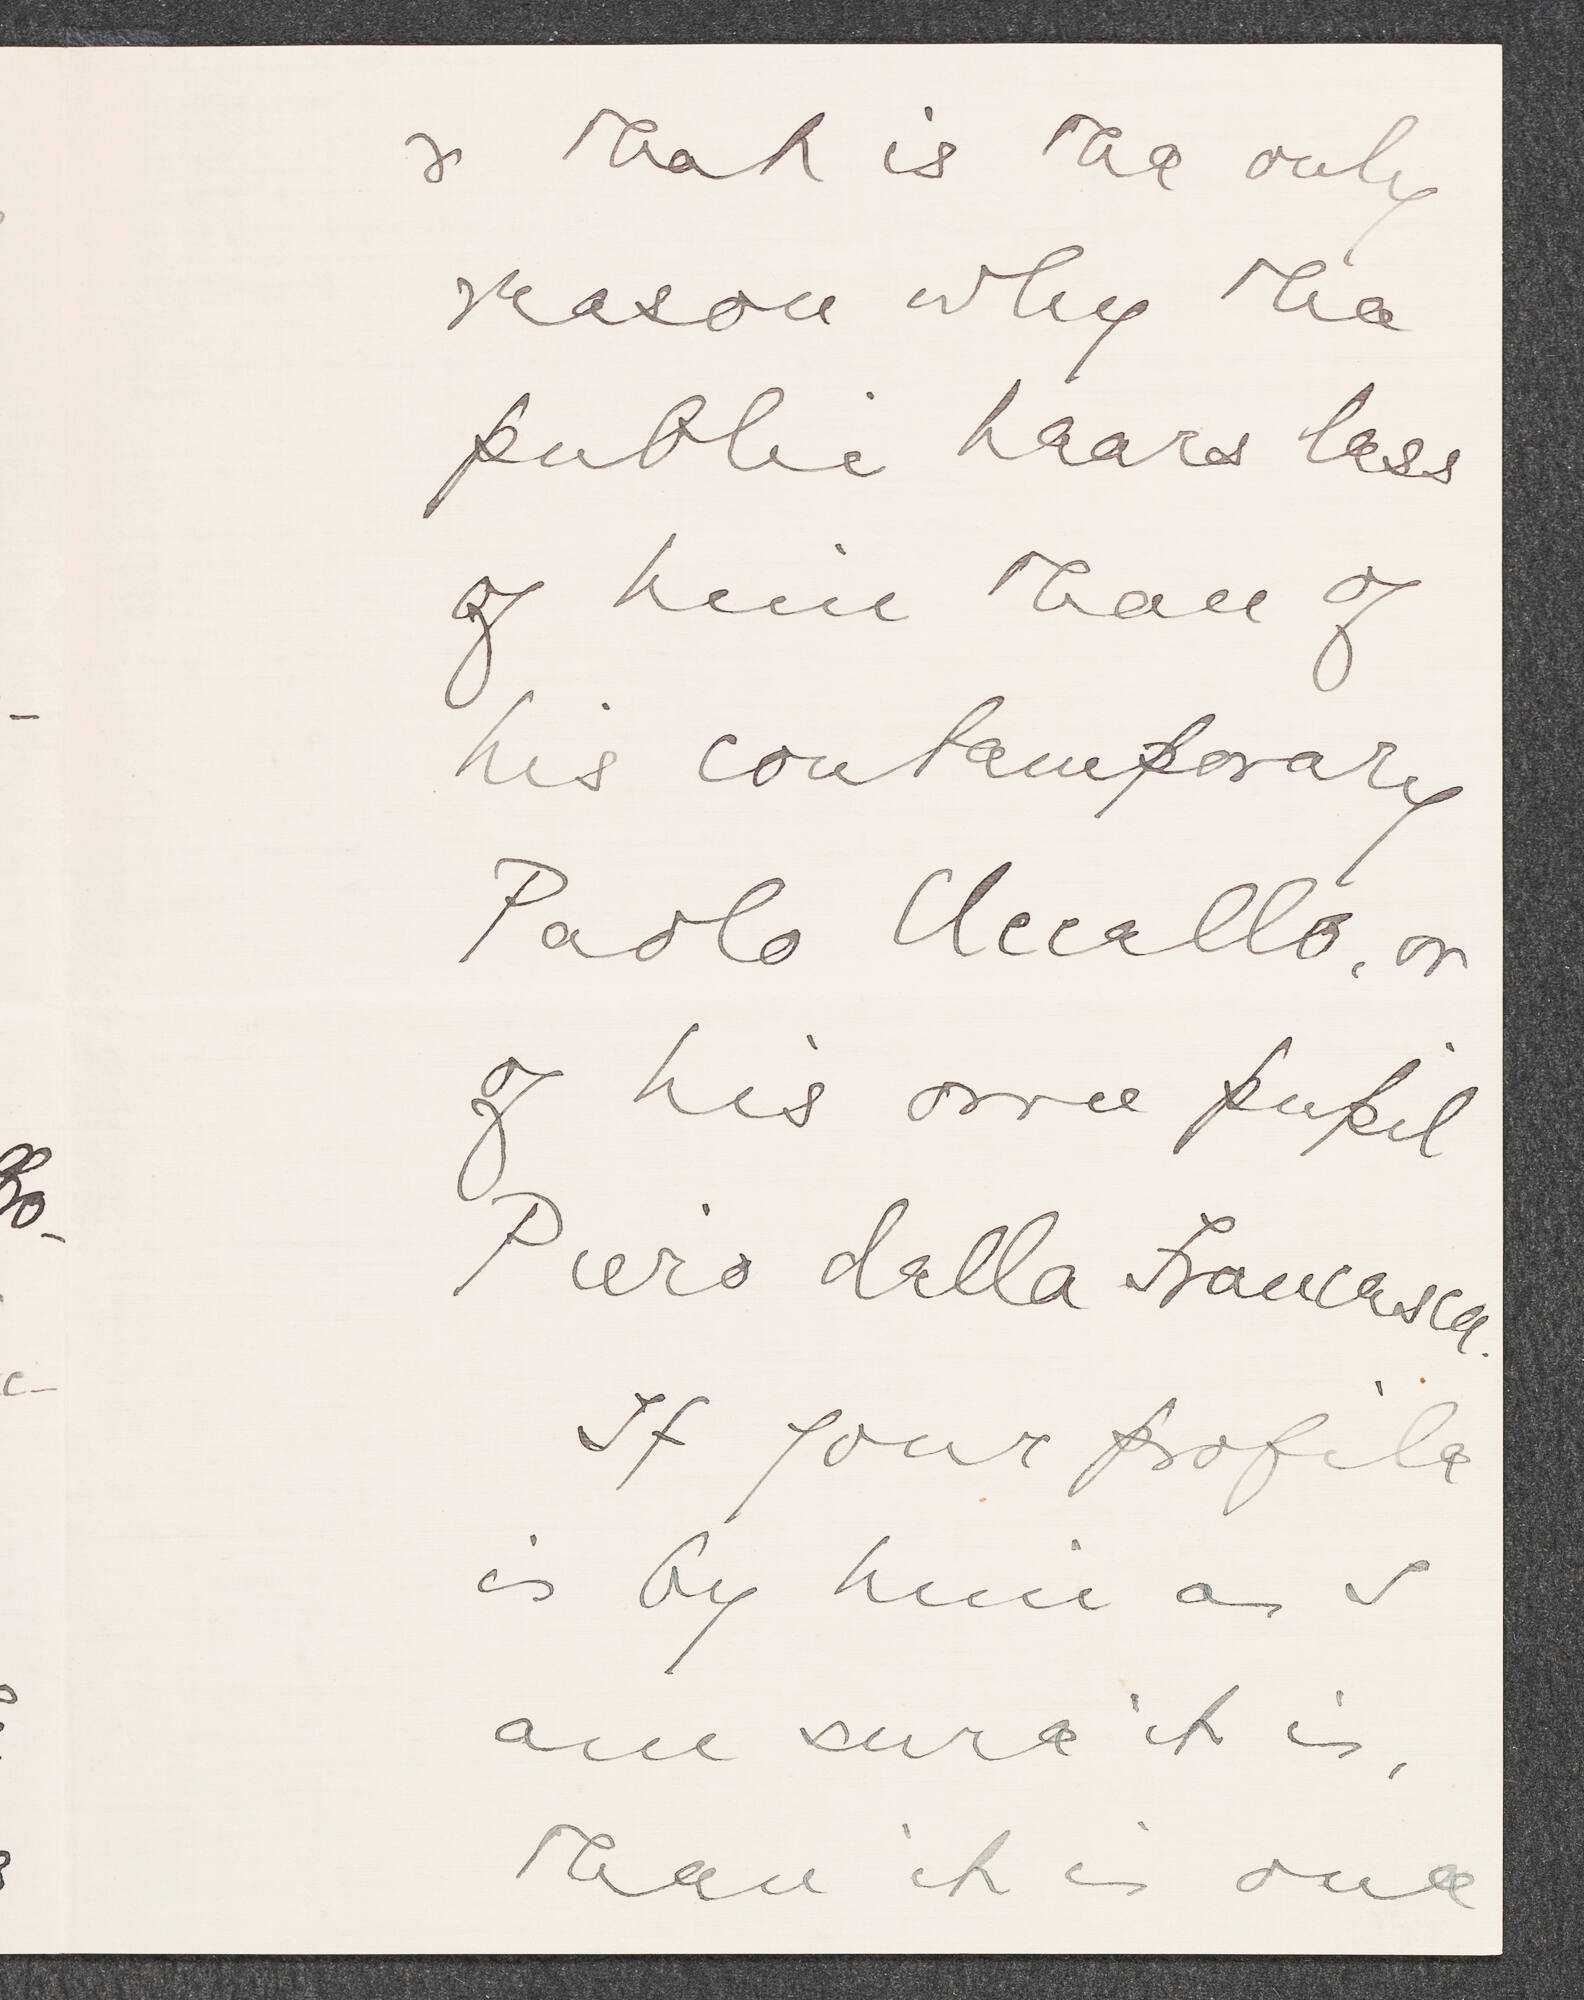 & that is the only
reason why the
public hears less
of him than of
his contemporary
Paolo Uccello, or
of his own pupil
Piero della Francesca.
If your profile
is by him as I
am sure it is,
then it is one